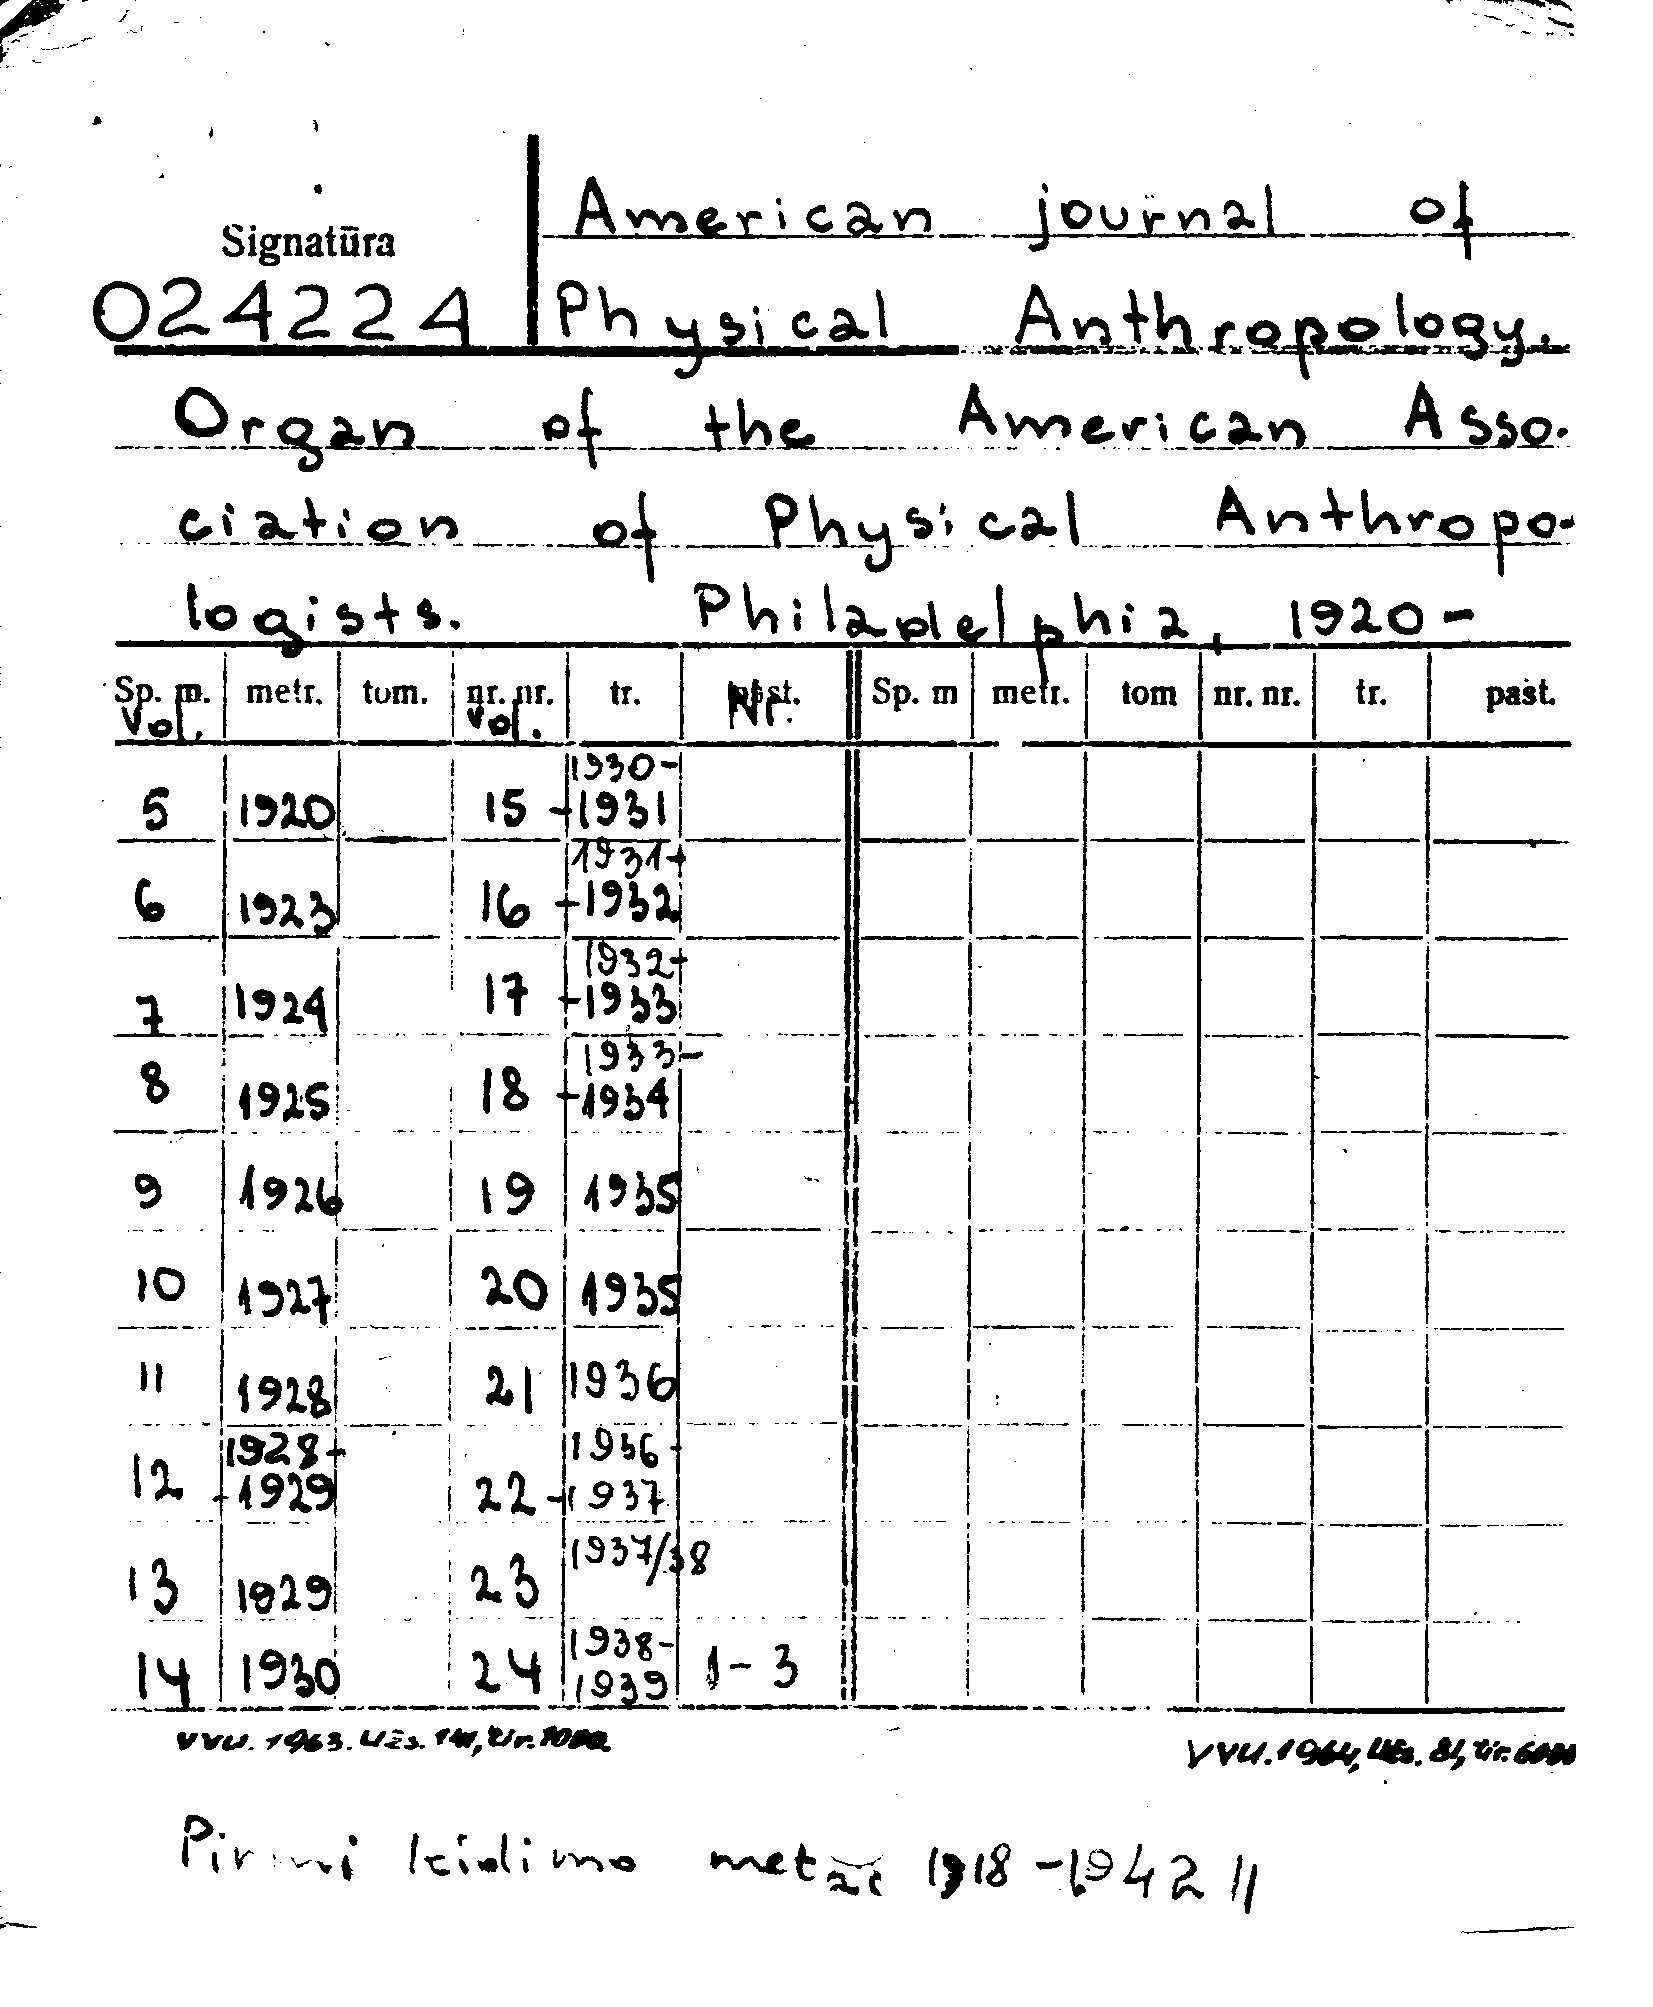 American journal of
Signatūra
024224 Physical Anthropology.
Organ of the American Asso-
ciation of Physical Anthropo-
logists. Philadelphia, 1920-
Sp. m. metr. tom. nr. nr. tr. past. Sp. m metr. tom nr. nr. tr. past.
Vol. Vol. Nr.
1930-
5 1920 15 -1931
1931-
6 1923 16 -1932
1932-
7 1924 17 -1933
1933-
8 1925 18 -1934
9 1926 19 1935
10 1927 20 1935
11 1928 21 1936
1928- 1936-
12 -1929 22 -1937
13 1929 23 1937/38
1938-
14 1930 24 1939 1-3
VVU. 1963. Užs. tir. VVU. 1964, Užs. 81, tir.
Pirmi leidimo metai 1918-1942 ||